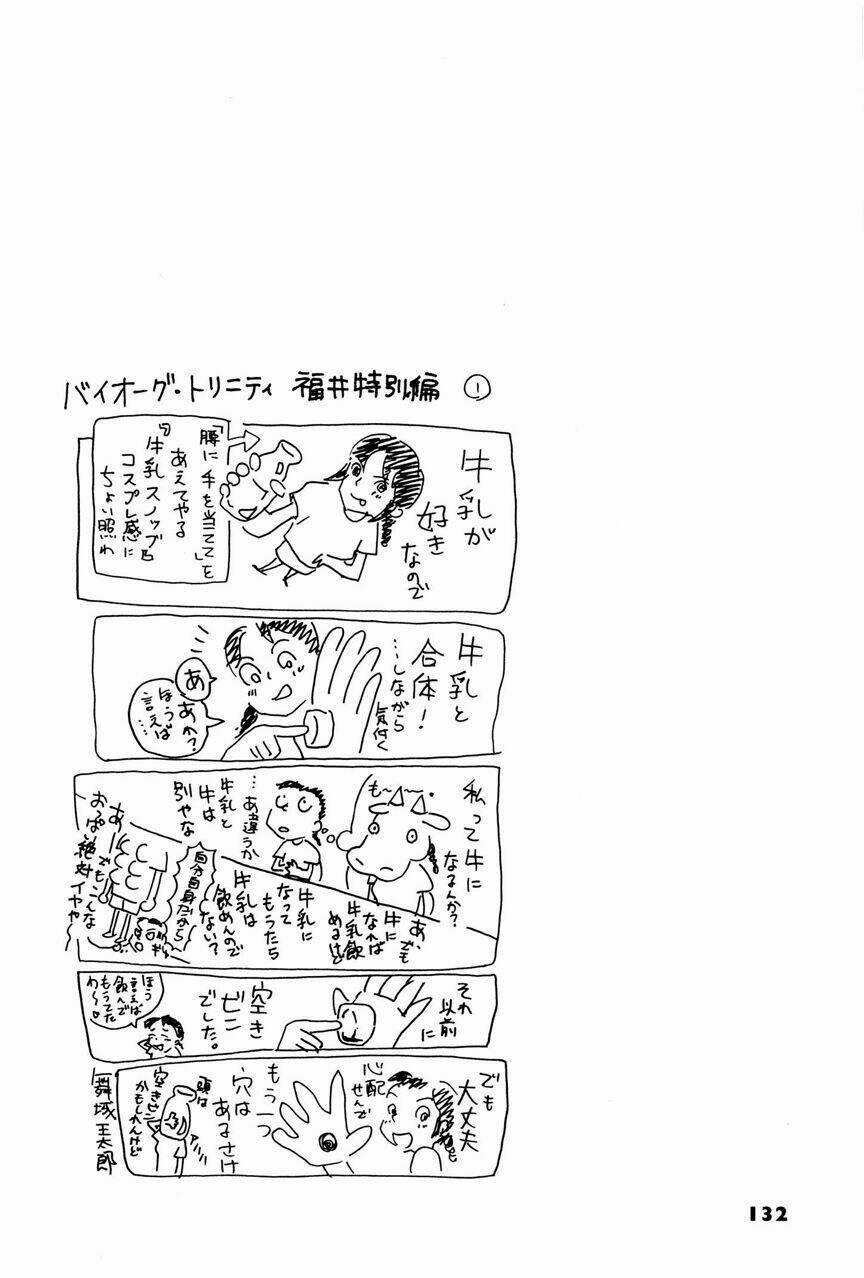 バイオーグ・トリニティ 福井特別編 ①
牛乳が
好き
なので
「腰に手を当てて」を
あえてやる
牛乳スノッブな
コスプレ感に
ちょい照れ
牛乳と
合体!
…しながら
気付く
あ
あれ?
ほうば
言えば…
私って牛に
なるんか?
も〜〜。
…あ違うか
牛乳と
牛は
別やな
あ、でも
牛に
なれば
牛乳飲
めるけど
牛乳に
なって
もうたら
牛乳は
飲めんので
ない?
自分自身だから
あー
でもこんな
おっぱい絶対イヤや
それ
以前に
空き
ビン
でした。
ほう
言えば
飲んで
もうてた
わ〜♡
でも
大丈夫
心配
せんで
もう一つ
穴は
あるさけ
頭は
空きビン
かもしれんけど
舞城王太郎
132